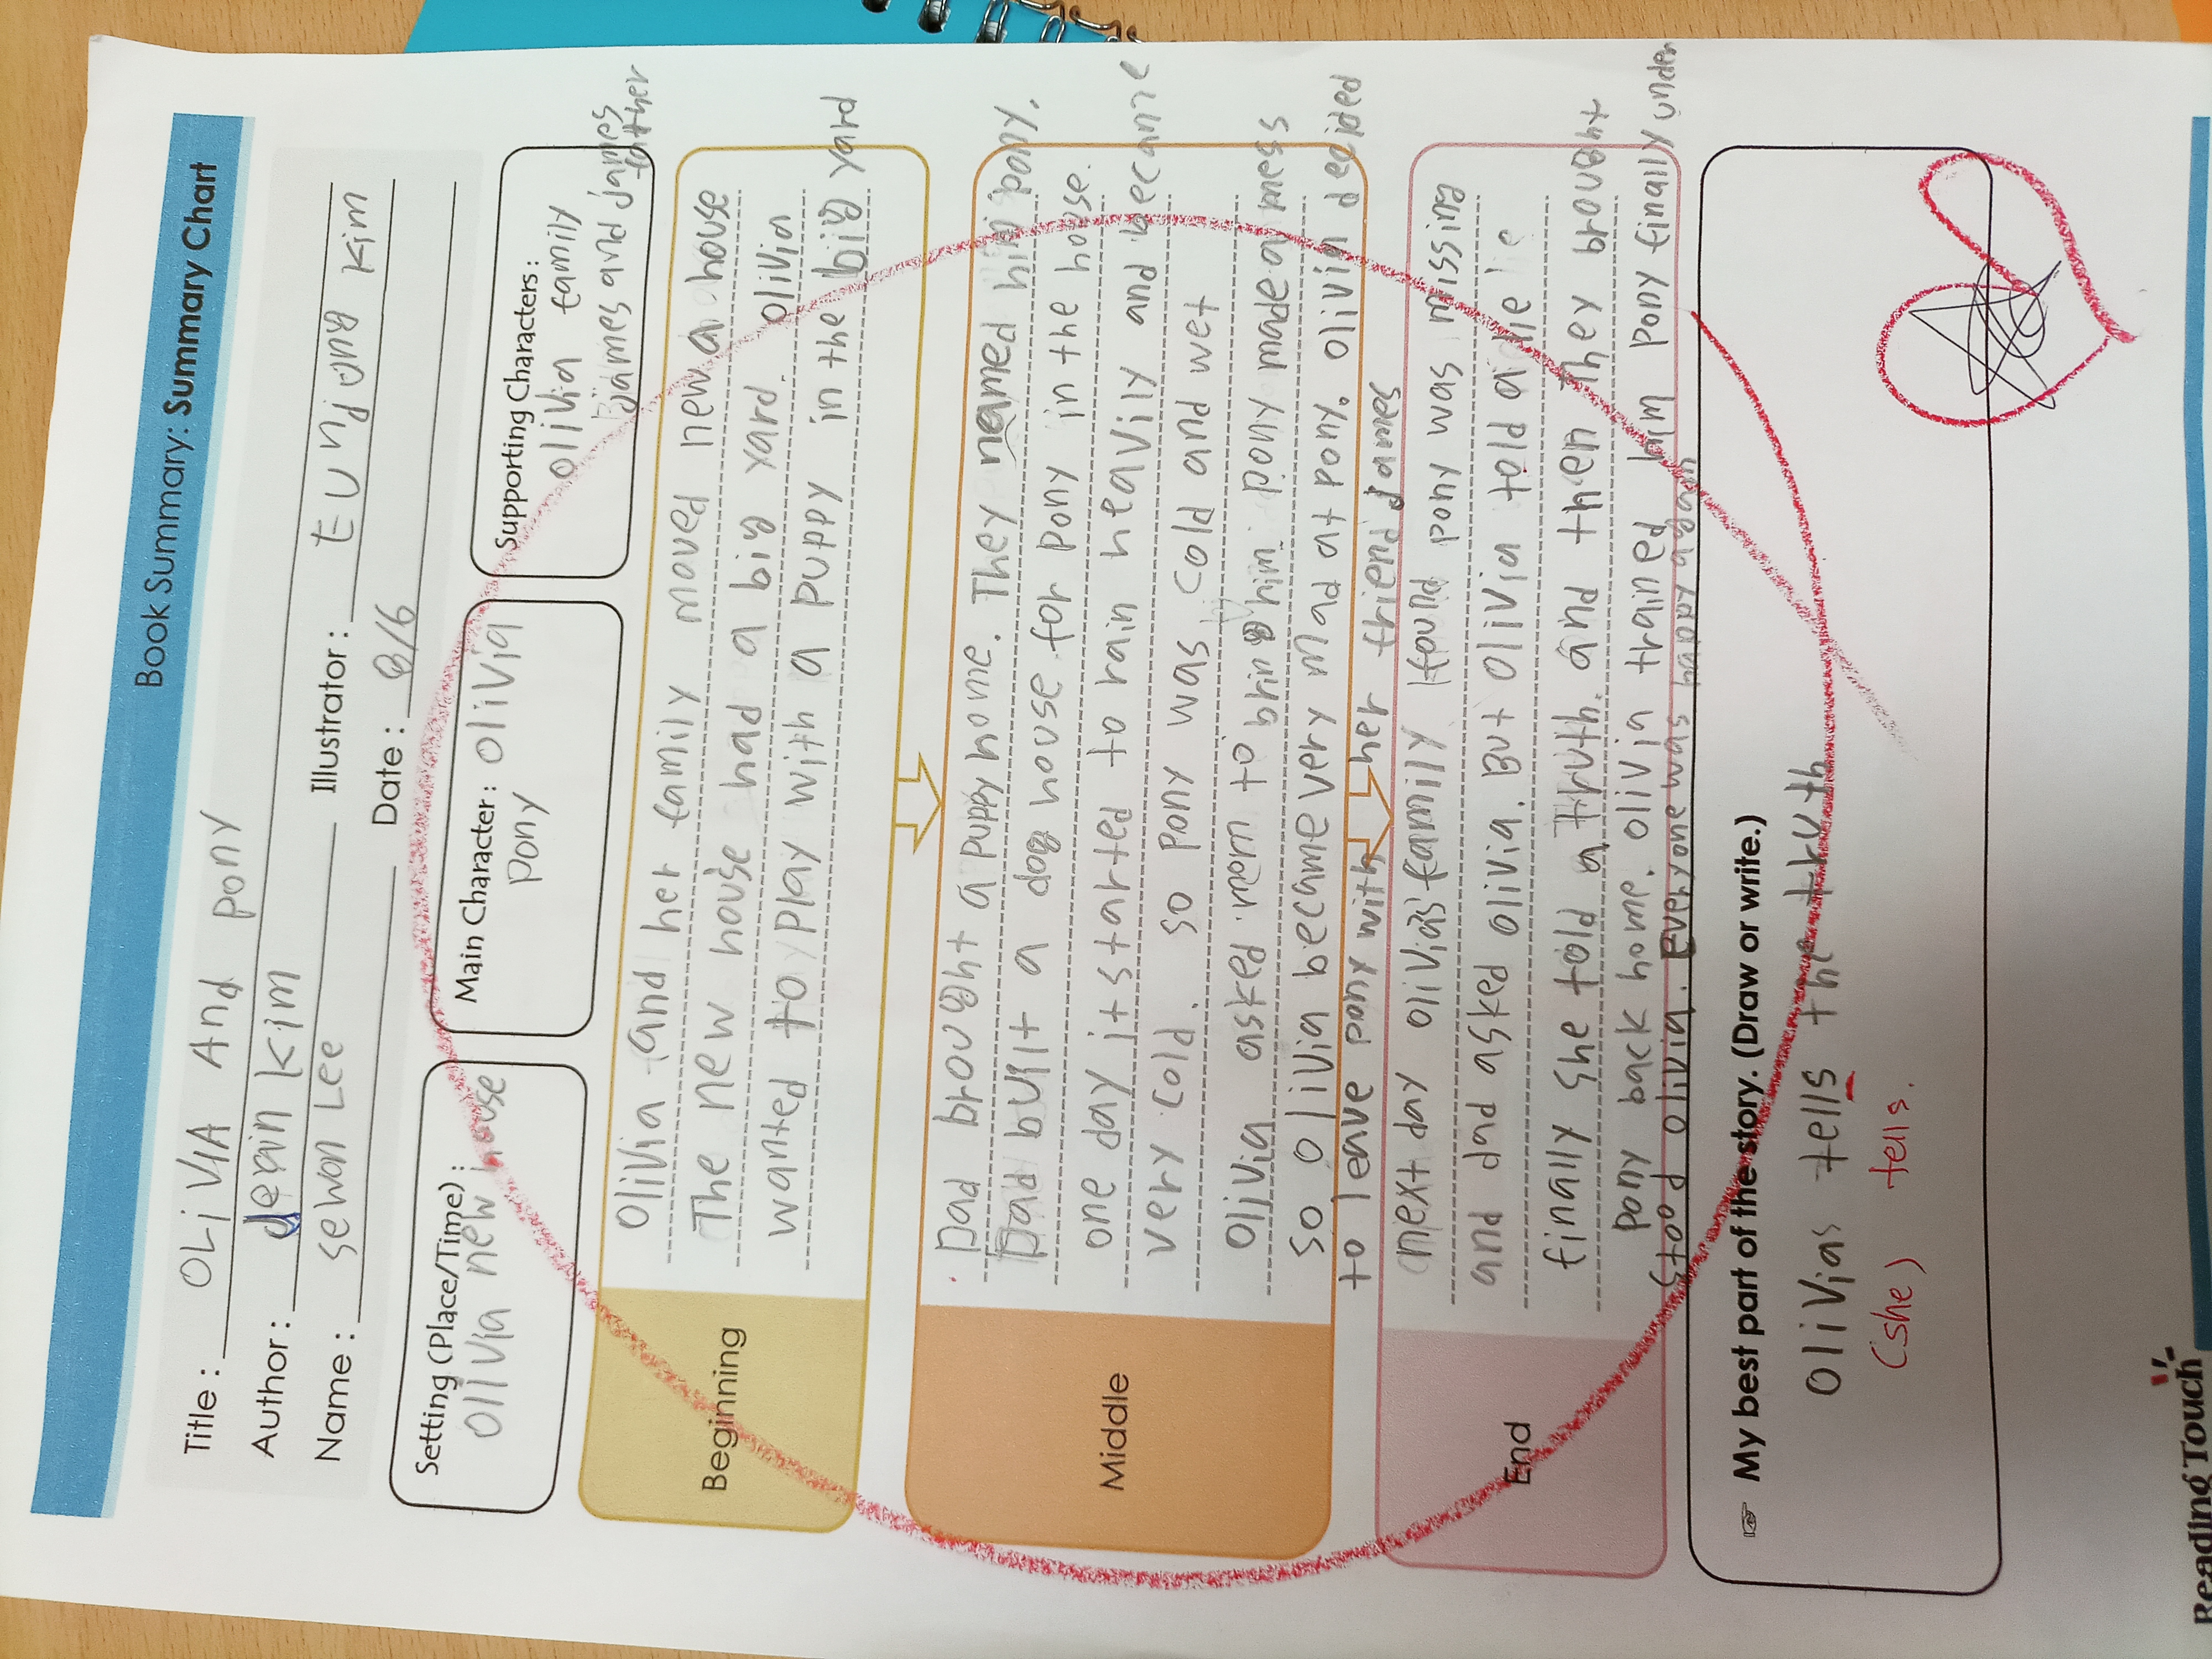 Book Summary: Summary Chart
Title : OLiVIA And pony
Author : derin kim Illustrator : Eunjong kim
Name : sewon Lee Date : 8/6
Setting (Place/Time) :
olivia new house
Main Character : olivia
pony
Supporting Characters :
olivia family
james and james
father
Beginning
Olivia and her family moved new a house
The new house had a big yard. olivia
wanted to play with a puppy in the big yard
Middle
Dad brought a puppy home. They named him pony.
Dad built a dog house for pony in the house.
one day it started to rain heavily and became
very cold. so pony was cold and wet
olivia asked mom to bring him. pony made a mess
so olivia became very mad at pony. olivia decided
to leave pony with her friend James
End
next day olivias family found pony was missing
and dad asked olivia. But olivia told a lie
finally she told a truth. and then they brought
pony back home. olivia trained him pony finally under
stood olivia. Everyone was happy again
☞ My best part of the story. (Draw or write.)
olivias tells the truth
(she) tells.
Reading Touch